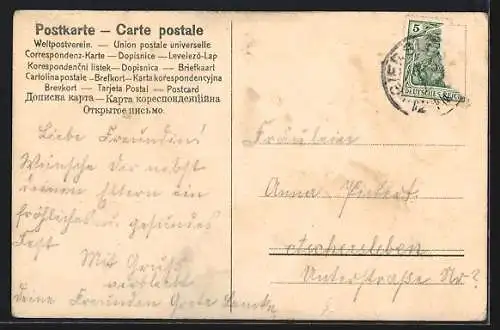 Postkarte – Carte postale
Weltpostverein. – Union postale universelle
Correspondenz-Karte – Dopisnice – Levelező-Lap
Korespondenční listek – Dopisnica – Briefkaart
Cartolina postale – Brefkort – Karta korespondencyjna
Brevkort – Tarjeta Postal – Postcard
Дописна карта – Карта кореспонденційна
Открытое письмо.
Liebe Freundin!
Wünsche Dir nebst
deinen Eltern ein
fröhliches u. gesundes
Fest
Mit Gruß
verbleibt
deine Freundin Grete
5
DEUTSCHES REICH
Fräulein
Anna
Aschersleben
Unterstraße Nr ?